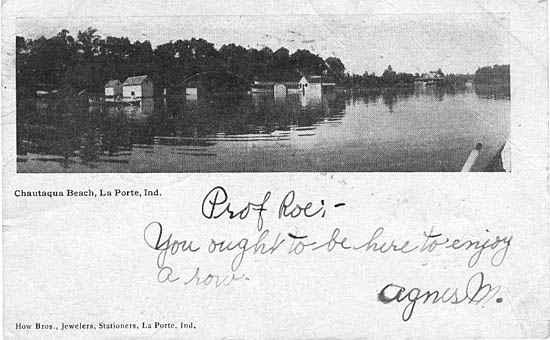 Chautauqua Beach, La Porte, Ind.
Prof Roe:-
You ought to be here to enjoy
a row.
Agnes M.
How Bros., Jewelers, Stationers, La Porte, Ind.